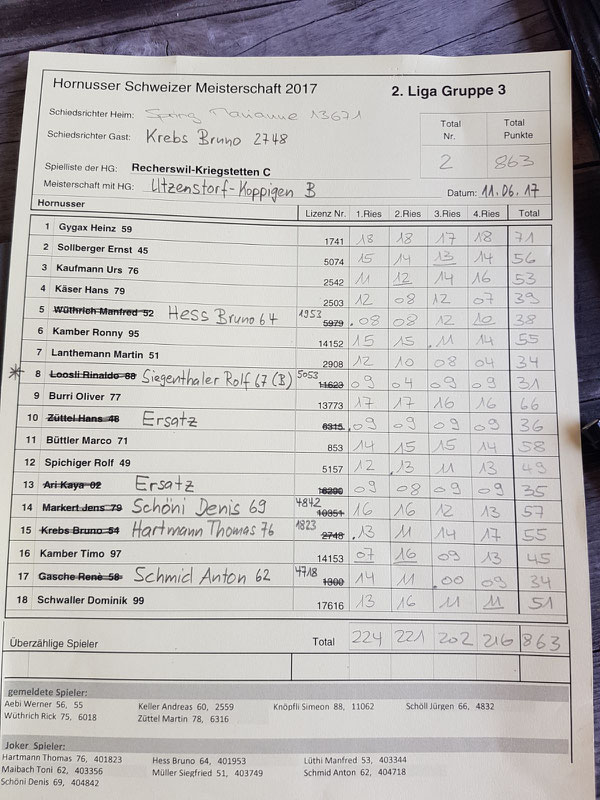 Hornusser Schweizer Meisterschaft 2017 2. Liga Gruppe 3
Schiedsrichter Heim: Marianne 13671
Schiedsrichter Gast: Krebs Bruno 2748
Total Nr. Total Punkte
2 863
Spielliste der HG: Recherswil-Kriegstetten C
Meisterschaft mit HG: Utzenstorf-Koppigen B Datum: 11.06.17
Hornusser Lizenz Nr. 1.Ries 2.Ries 3.Ries 4.Ries Total
1 Gygax Heinz 59 1741 18 18 17 18 71
2 Sollberger Ernst 45 5074 15 14 13 14 56
3 Kaufmann Urs 76 2542 11 12 14 16 53
4 Käser Hans 79 2503 12 08 12 07 39
5 Wüthrich Manfred 52 Hess Bruno 64 1953 5979 .08 08 12 10 38
6 Kamber Ronny 95 14152 15 15 .11 14 55
7 Lanthemann Martin 51 2908 12 10 08 04 34
* 8 Loosli Rinaldo 88 Siegenthaler Rolf 67 (B) 5053 11623 09 04 09 09 31
9 Burri Oliver 77 13773 17 17 16 16 66
10 Züttel Hans 46 Ersatz 6315 .09 09 09 09 36
11 Büttler Marco 71 853 14 15 15 14 58
12 Spichiger Rolf 49 5157 12 .13 11 13 49
13 Ari Kaya 02 Ersatz 16200 09 08 09 09 35
14 Markert Jens 79 Schöni Denis 69 4842 10351 16 16 12 13 57
15 Krebs Bruno 54 Hartmann Thomas 76 1823 2748 .13 11 14 17 55
16 Kamber Timo 97 14153 07 16 09 13 45
17 Gasche Renè 58 Schmid Anton 62 4718 1300 14 11 .00 09 34
18 Schwaller Dominik 99 17616 13 16 11 11 51
Überzählige Spieler Total 224 221 202 216 863
gemeldete Spieler:
Aebi Werner 56, 55 Keller Andreas 60, 2559 Knöpfli Simeon 88, 11062 Schöll Jürgen 66, 4832
Wüthrich Rick 75, 6018 Züttel Martin 78, 6316
Joker Spieler:
Hartmann Thomas 76, 401823 Hess Bruno 64, 401953 Lüthi Manfred 53, 403344
Maibach Toni 62, 403356 Müller Siegfried 51, 403749 Schmid Anton 62, 404718
Schöni Denis 69, 404842